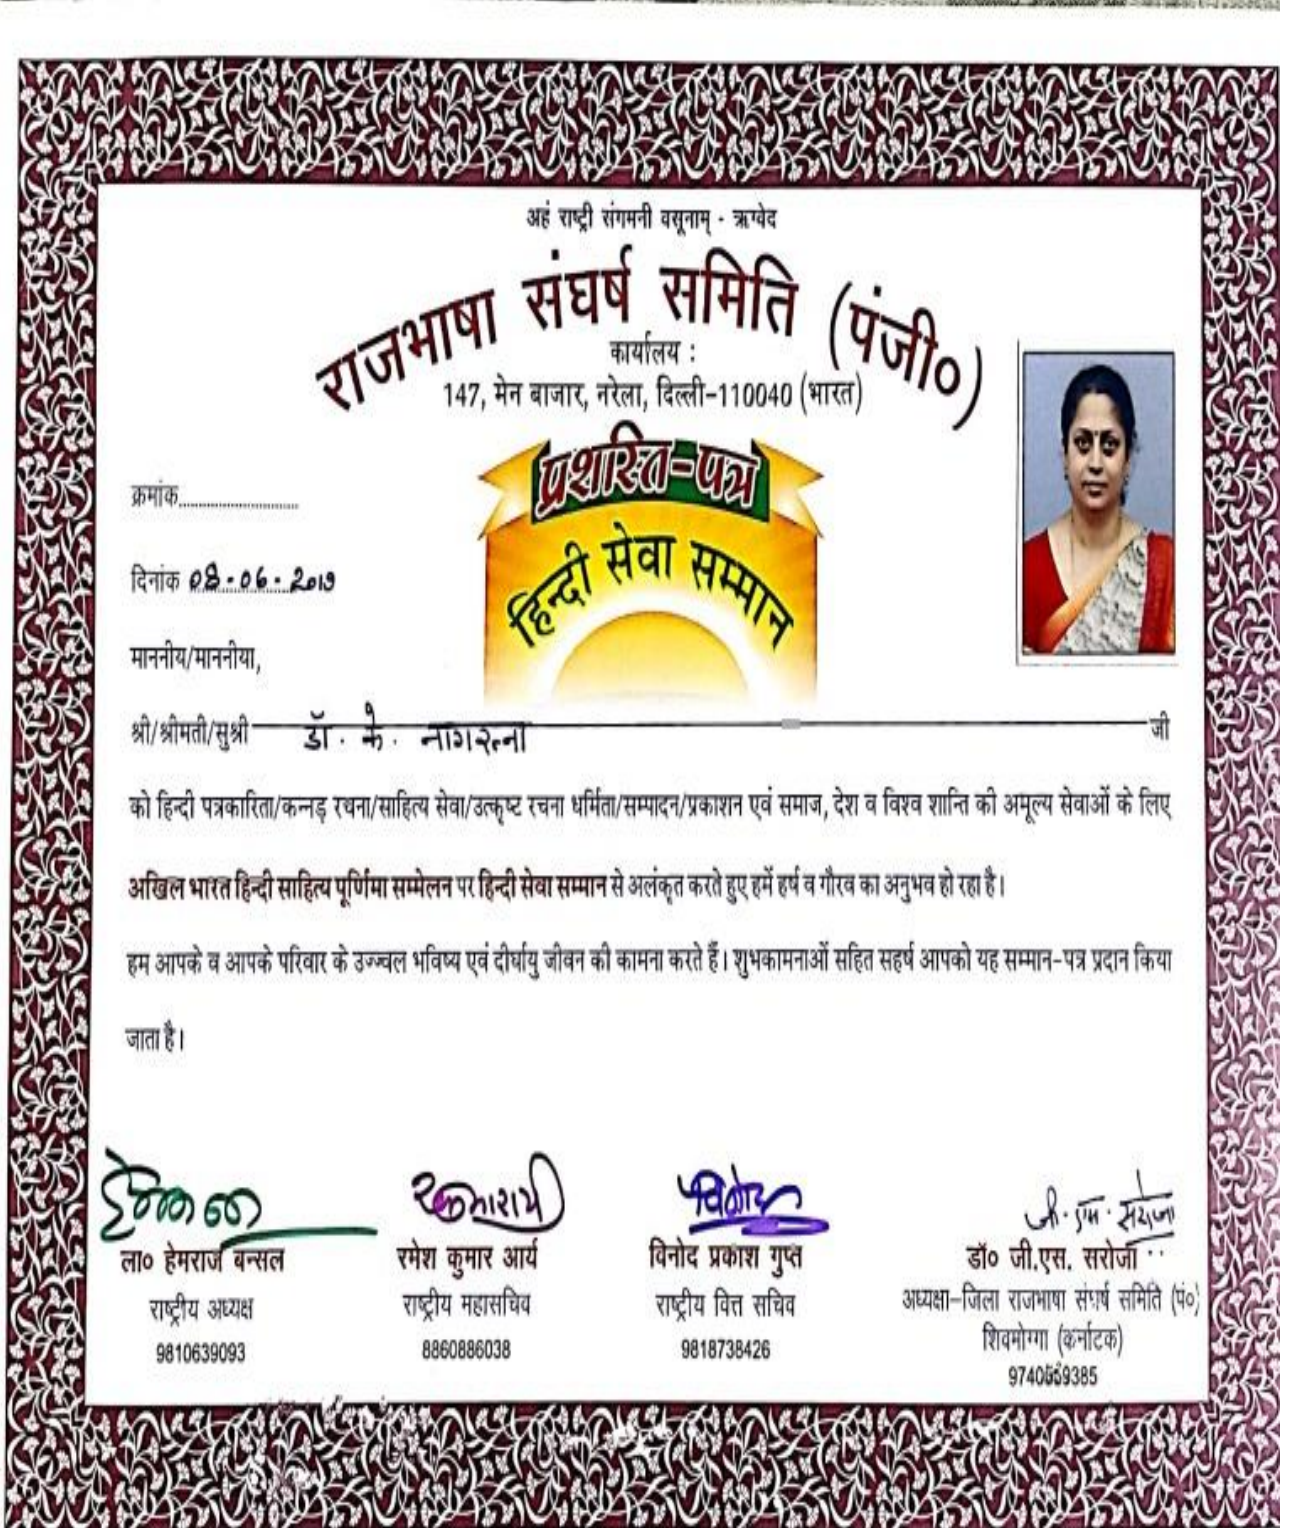 अहं राष्ट्री संगमनी वसूनाम् - ऋग्वेद
राजभाषा संघर्ष समिति (पंजी०)
कार्यालय :
147, मेन बाजार, नरेला, दिल्ली-110040 (भारत)
प्रशस्ति-पत्र
हिन्दी सेवा सम्मान
क्रमांक
दिनांक 08-06-2019
माननीय/माननीया,
श्री/श्रीमती/सुश्री डॉ. के. नागरत्ना जी
को हिन्दी पत्रकारिता/कन्नड़ रचना/साहित्य सेवा/उत्कृष्ट रचना धर्मिता/सम्पादन/प्रकाशन एवं समाज, देश व विश्व शान्ति की अमूल्य सेवाओं के लिए
अखिल भारत हिन्दी साहित्य पूर्णिमा सम्मेलन पर हिन्दी सेवा सम्मान से अलंकृत करते हुए हमें हर्ष व गौरव का अनुभव हो रहा है।
हम आपके व आपके परिवार के उज्ज्वल भविष्य एवं दीर्घायु जीवन की कामना करते हैं। शुभकामनाओं सहित सहर्ष आपको यह सम्मान-पत्र प्रदान किया
जाता है।
जी. एस. सरोजा
ला० हेमराज बन्सल
राष्ट्रीय अध्यक्ष
9810639093
रमेश कुमार आर्य
राष्ट्रीय महासचिव
8860886038
विनोद प्रकाश गुप्त
राष्ट्रीय वित्त सचिव
9818738426
डॉ० जी.एस. सरोजा
अध्यक्षा-जिला राजभाषा संघर्ष समिति (पं०)
शिवमोग्गा (कर्नाटक)